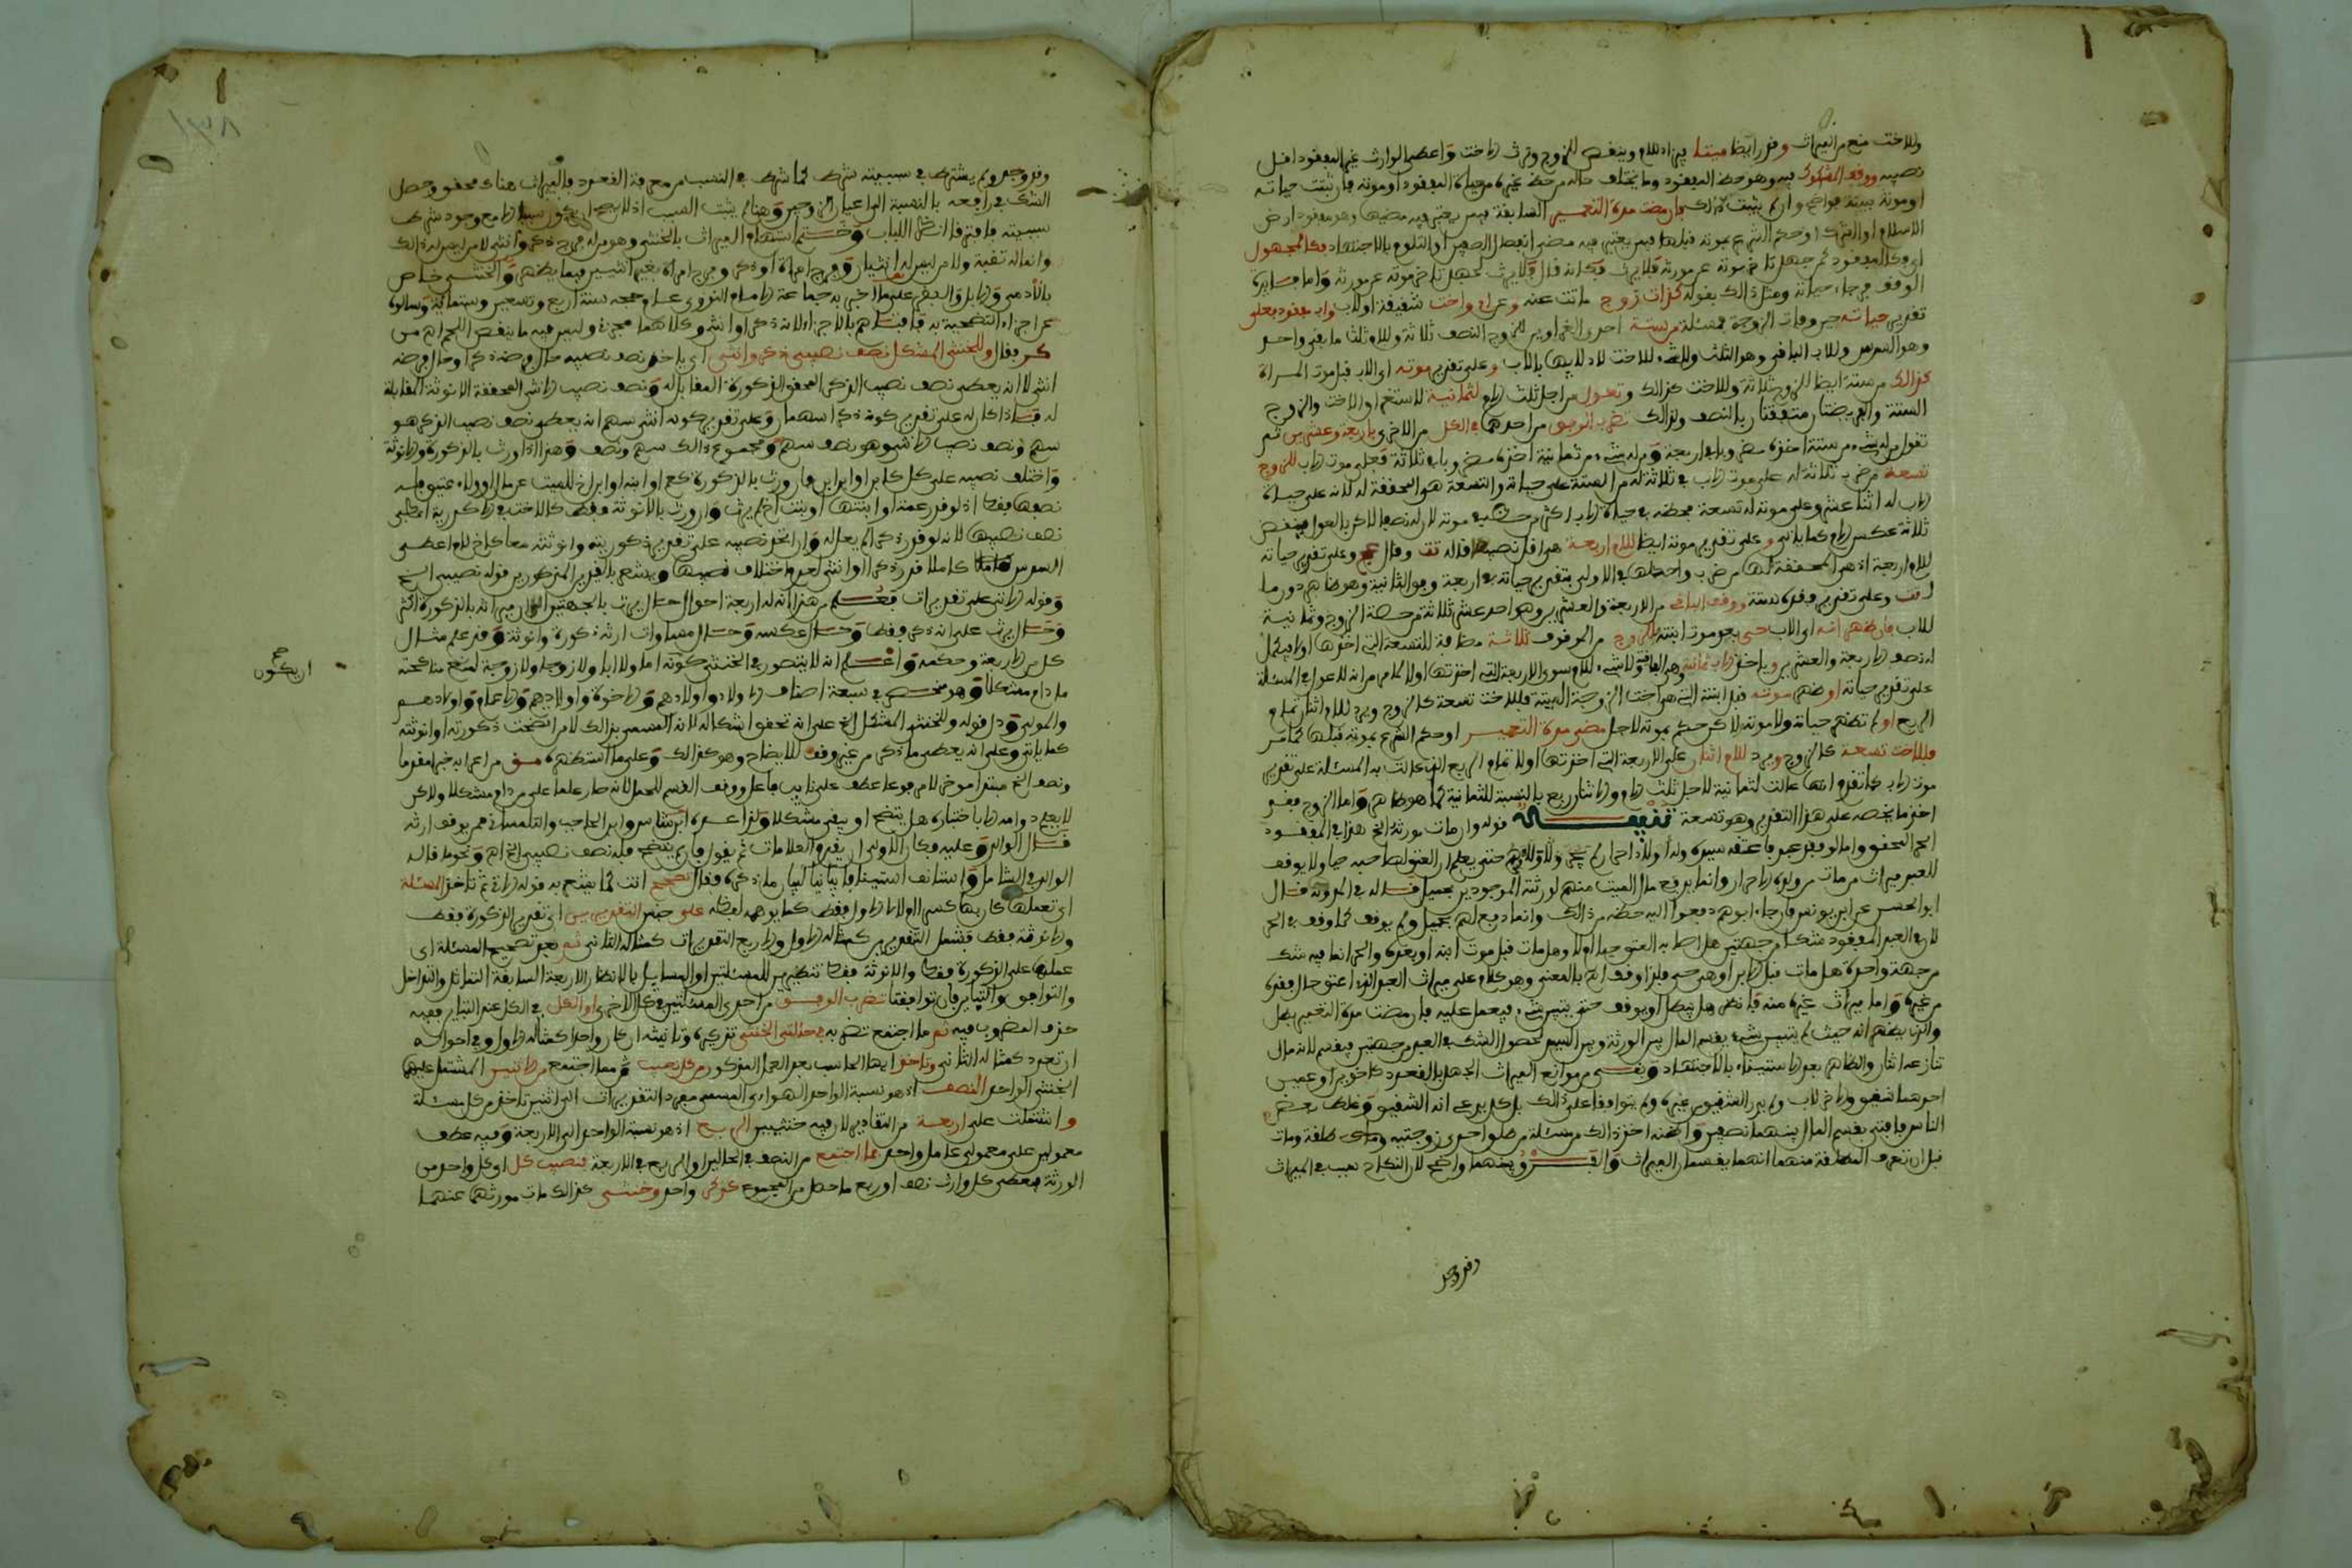 وللاخت منع من الميراث وقدر ايضا ميتا فيزاد للام وينقص للزوج وترث الاخت واعطي الوارث غير المفقود اقل
نصيبه ووقف المشكوك فيه وهو حظ المفقود وما يختلف حاله من حظ غيره من حياة المفقود او موته فان ثبتت حياته
او موته ببينة فواضح وان لم يثبت ذلك فان مضت مدة التعمير السابقة فيمن يعتبر فيه مضيها وهو مفقود ارض
الاسلام او الشرك او حكم الشرع بموته قبلها فيمن يعتبر فيه مضي انفصال الصفين او التلوم بالاجتهاد فكالمجهول
اي فكالمفقود ثم جهل تاخر موته عن مورثه فلا يرث فكانه قال فلا يرث لجهل تاخر موته عن مورثه واما
الوقف فرجاء حياته ومثل ذلك بقوله كذات زوج ماتت عنه وعن ام واخت شقيقة او لاب واب مفقود فعلى
تقدير حياته حين وفات الزوجة فمسئلة من ستة احدى الغراوين للزوج النصف ثلاثة وللام ثلث ما بقي واحد
وهو السدس وللاب الباقي وهو الثلث ولا شيء للاخت لادلايها بالاب وعلى تقدير موته اي الاب قبل موت المراة
كذلك من ستة ايضا للزوج ثلاثة وللاخت كذلك وتعول من اجل ثلث الام لثمانية لاستغراق الاخت والزوج
الستة والفريضتان متفقتان بالنصف ولذلك تضرب الوفق من احدهما في الكل من الاخرى باربعة وعشرين ثم
تقول من له شيء من ستة اخذه مضروبا في اربعة ومن له شيء من ثمانية اخذه مضروبا في ثلاثة فعلى موت الاب للزوج
تسعة من ضرب ثلاثة له على موت الاب في ثلاثة له من الستة على حياته والتسعة هو المحققة له لانه على حياة
الاب له اثنا عشر وعلى موته له تسعة
ثلاثة عكس الام كما ياتي وعلى تقدير موته ايضا للام اربعة هي اقل نصيبها قاله تت وقال عج وعلى تقدير حياته
للام اربعة اذ هي المحققة لها
تت وعلى تقدير فقده ستة ووقف الباقي من الاربعة والعشرين وهو احد عشر ثلاثة من حصة الزوج وثمانية
للاب فان ظهر انه اي الاب حي بعد موت ابنته فللزوج من الموقوف ثلاثة مضافة للتسعة التي اخذها اولا فيكمل
له نصف الاربعة والعشرين وياخذ الاب ثمانية وهي الباقية ولا شيء للام سوى الاربعة التي اخذتها اولا كما مر انه لا عول في المسئلة
على تقدير حياته او ظهر موته قبل ابنته التي هي اخت الزوجة الميتة فللاخت تسعة كالزوج ويزاد للام اثنان تمام
الربع او لم تظهر حياته ولا موته لاكن حكم بموته لاجل مضي مدة التعمير او حكم الشرع بموته قبلها كما مر
فللاخت تسعة كالزوج ويزاد للام اثنان على الاربعة التي اخذتها اولا تمام الربع الذي عالت به المسئلة على تقدير
موت الاب كما تقدم انها عالت لثمانية لاجل ثلث الام والاثنان ربع بالنسبة للثمانية كما هو ظاهر واما الزوج فقد
اخذ ما يخصه على هذا التقدير وهو تسعة تتمة قوله وان مات مورثه الخ هذا في المفقود
الحر المحقق واما لو فقد عبد فاعتقه سيده وله اولاد احرار
للعبد ميراث من مات من ولده الاحرار وانما يدفع مال الميت منهم لورثته الموجودين بحميل قاله في المدونة قال
ابو الحسن عن ابن يونس فان جاء ابوهم دفعوا اليه حظه من ذلك وانما دفع لهم بحميل ولم يوقف كما وقف في الحر
لان في العبد المفقود شكا من جهتين هل اصابه العتق حيا او لا وهل مات قبل موت ابنه او بعده والحر انما فيه شك
من جهة واحدة هل مات قبل الابن او هو حي فلذا اوقف اه بالمعنى وهو كلام على ميراث العبد الذي اعتق حال فقده
من غيره واما ميراث غيره منه فانظر هل يبطل او يوقف حتى يتبين شيء فيعمل عليه فان مضت مدة التعمير بطل
والذي يظهر انه حيث لم يتبين شيء يقسم المال بين الورثة وبين السيد لحصول الشك في العبد من جهتين فيقسم لانه مال
تنازعه اثنان والظاهر بعد الاستيناء بالاجتهاد وبقي من موانع الميراث الجهل بالقعدد كاخوين او عمين
احدهما شقيق والاخر لاب ولم يدر الشقيق من غيره ولم يتوافقا على ذلك بل كل يدعي انه الشقيق وغلط بعض
الناس فافتى بقسم المال بينهما نصفين واظنه اخذ ذلك من مسئلة من طلق احدى زوجتيه ومات
قبل ان تعرف المطلقة منهما انهما يقسمان الميراث والفرق بينهما واضح لان النكاح سبب في الميراث
وقد وجد
وقد وجد ولم يشترك في سببيته شرك كما شرك في النسب من معرفة القعدد فالميراث هناك محقق وحصل
الشك في رافعه بالنسبة الى اعيان الزوجين وهنا لم يثبت السبب اذ لا يصح ان يكون سببا الا مع وجود شرط
سببيته فافترقا انظر اللباب وختم اسهام الميراث بالخنثى وهو من له فرج ذكر وانثى لا من ليس له ذلك
وانما له ثقبة ولا من ليس له انثيان وفرج امراة او ذكر وفرج امراة بغير انثيين فيما يظهر والخنثى خاص
بالآدمي والابل والبقر على ما اخبر به جماعة الامام النووي عام حجه سنة اربع وسبعين وستمائة وسالوه
عن اجزاء التضحية به فافتاهم بالاجزاء لانه ذكر او انثى وكلاهما مجزئ وليس فيه ما ينقص اللحم اه من
كر وقال وللخنثى المشكل نصف نصيبي ذكر وانثى اي ياخذ نصف نصيبه حال فرضه ذكرا وحال فرضه
انثى لا انه يعطى نصف نصيب الذكر المحقق الذكورة المقابل له ونصف نصيب الانثى المحققة الانوثة المقابلة
له فاذا كان له على تقدير كونه ذكرا سهمان وعلى تقدير كونه انثى سهم انه يعطى نصف نصيب الذكر هو
سهم ونصف نصيب الانثى وهو نصف سهم ومجموع ذلك سهم ونصف وهذا اذا ورث بالذكورة والانوثة
واختلف نصيبه على كل كابن او ابن ابن فان ورث بالذكورة كعم او ابنه او ابن اخ للميت عن مال او ولاء عتيق فله
نصفها فقط اذ لو قدر عمة او ابنتها او بنت اخ لم يرث وان ورث بالانوثة فقط كالاخت في الاكدرية اعطي
نصف نصيبها لانه لو قدر ذكرا لم يعل له وان اتحد نصيبه على تقدير ذكوريته وانوثته معا كاخ لام اعطي
السدس كاملا قدر ذكرا او انثى لعدم اختلاف نصيبها ويشعر بالقيدين المذكورين قوله نصيبي الخ
وقوله الاتي على تقديرات فعلم من هذا انه له اربعة احوال حال يرث بالجهتين الا ان ميراثه بالذكورة اكثر
وحال يرث على انه ذكر فقط وحال عكسه وحال مساوات ارثه ذكورة وانوثة وقد علم مثال
كل من الاربعة وحكمه واعلم انه لا يتصور في الخنثى كونه اما ولا ابا ولا زوجا ولا زوجة لمنع مناكحته
ما دام مشكلا وهو منحصر في سبعة اصناف الاولاد واولادهم والاخوة واولادهم والاعمام واولادهم
والموالي ودل قوله وللخنثى المشكل الخ على انه تحقق اشكاله لانه المسمى بذلك لا من اتضحت ذكورته او انوثته
كما ياتي وعلى انه يعطى ما ذكر من غير وقف للايضاح وهو كذلك وعلى ما استظهره من اعرابه خبرا مقدما
ونصف الخ مبتدا موخر لا مرفوعا عطف على نايب فاعل ووقف القسم للحمل لانه صار علما على من دام مشكلا ولاكن
لا يعلم دوامه الا باختباره هل يتضح او يبقى مشكلا ولذا عده ابن شاس وابن الحاجب والتلمساني ممن يوقف ارثه
قال الوانوغي وعليه فكان الاولى ان يقدم العلامات ثم يقول فان لم يتضح فله نصف نصيبي الخ اه ونحوه قاله
في الشامل واستانف استينافا بيانيا لبيان ما ذكره فقال تصحح انت كما يشعر به قوله الاتي ثم تاخذ المسئلة
اي تعملها كان بها كسر ام لا لا الاول فقط كما يوهمه لفظه على جنس التقديرين اي تقدير الذكورة فقط
والانوثة فقط فشمل التقديرين كمثاله الاول والاربع التقديرات كمثاله الثاني ثم بعد تصحيح المسئلة اي
عملها على الذكورة فقط والانوثة فقط تنظر بين المسئلتين او المسايل بالانظار الاربعة السابقة التماثل والتداخل
والتوافق والتباين فان توافقتا تضرب الوفق من احدى المسئلتين في كل الاخرى او الكل في الكل عند التباين ففيه
حذف المضروب فيه ثم ما اجتمع تضربه في حالتي الخنثى تذكيره وتانيثه ان كان واحدا كمثاله الاول وفي احواله
ان تعدد كمثاله الثاني وتاخذ ايها الحاسب بعد العمل المذكور من كل نصيب ثم مما اجتمع من الاثنين المشتمل عليهما
الخنثى الواحد النصف اذ هو نسبة الواحد الهوائي المسمى مفرد التقديرات الى اثنين تاخذ من كل مسئلة
واشتملت على اربعة من التقادير لان فيه خنثيين الربع اذ هو نسبة الواحد الى الاربعة وفيه عطف
معمولين على معمولي عامل واحد فما اجتمع من النصف في الحالين او الربع في الاربعة فنصيب كل اي كل واحد من
الورثة فيعطى كل وارث نصف او ربع ما حصل من المجموع كذكر واحد وخنثى كذلك مات مورثهما عنهما
صح
ان يكون